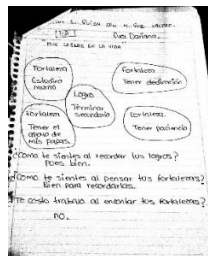 Eva Dariana.
MIS LOGROS EN LA VIDA
Fortaleza
Estudiar
mucho
Fortaleza
Tener dedicación
Logro
Terminar
secundaria
Fortaleza
Tener el
apoyo de
mis papas.
Fortaleza.
Tener paciencia
¿Como te sientes al recordar tus logros?
Pues bien.
¿Como te sientes al pensar tus fortalezas?
Bien para recordarlas.
¿Te costo trabajo al encontar tus fortalezas?
no.